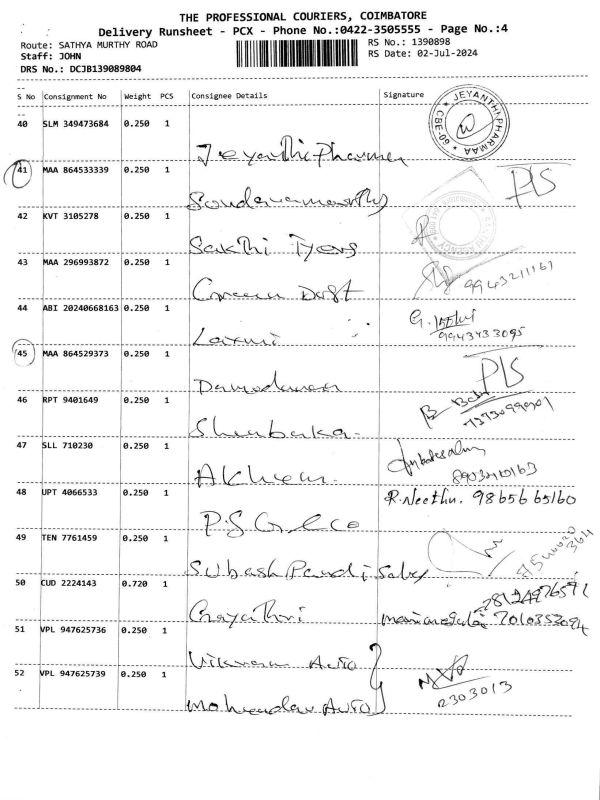 THE PROFESSIONAL COURIERS, COIMBATORE
Delivery Runsheet - PCX - Phone No.:0422-3505555 - Page No.:4
Route: SATHYA MURTHY ROAD
RS No.: 1390898
Staff: JOHN
RS Date: 02-Jul-2024
DRS No.: DCJB139089804
S No Consignment No Weight PCS Consignee Details Signature
40 SLM 349473684 0.250 1
JEYANTHI PHARMAA
CBE-09
Jeyanthi Pharmaa
41 MAA 864533339 0.250 1
P/S
42 KVT 3105278 0.250 1
Sakthi Tyers
43 MAA 296993872 0.250 1
9943211161
Green Dost
44 ABI 20240668163 0.250 1
9943433095
Laxmi
45 MAA 864529373 0.250 1
P/S
Damodaran
46 RPT 9401649 0.250 1
Shubaka
47 SLL 710230 0.250 1
8903410163
48 UPT 4066533 0.250 1
R.Neethu. 9865665160
P.S.
49 TEN 7761459 0.250 1
Subash Pandi
50 CUD 2224143 0.720 1
Gayathri
7010353094
51 VPL 947625736 0.250 1
Vikram Auto
52 VPL 947625739 0.250 1
2303013
Auto